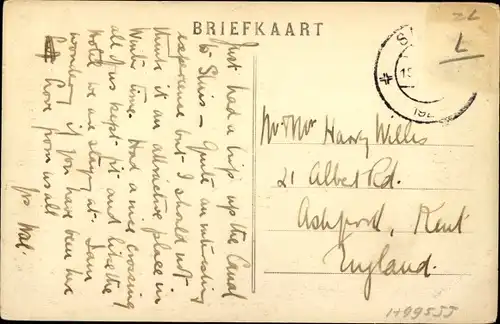 BRIEFKAART
Just had a trip up the Canal
to Sluis – Quite an interesting
experience but I should not
think it an attractive place in
Winter time. Had a nice crossing
all of us kept fit and like the
Hotel we are staying at. I am
wondering if you have been here
Love from us all
Yrs Wal.
Mr & Mrs Harry Willis
21 Albert Rd.
Ashford, Kent
England.
L